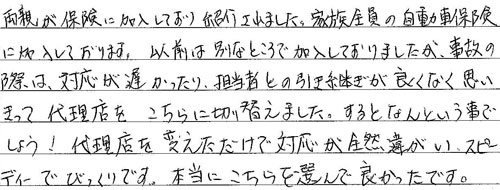 両親が保険に加入しており紹介されました。家族全員の自動車保険
に加入しております。以前は別なところで加入しておりましたが、事故の
際は、対応が遅かったり、担当者との引き継ぎが良くなく思い
きって代理店をこちらに切り替えました。するとなんという事で
しょう!代理店を変えただけで対応が全然違がい、スピー
ディーでびっくりです。本当にこちらを選んで良かったです。